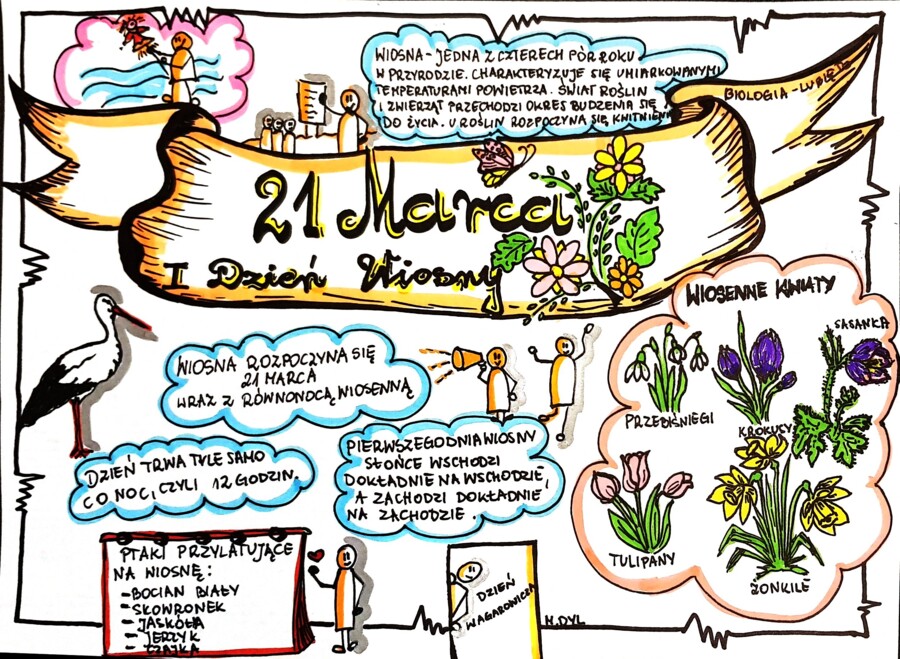 WIOSNA - JEDNA Z CZTERECH PÓR ROKU
W PRZYRODZIE. CHARAKTERYZUJE SIĘ UMIARKOWANYMI
TEMPERATURAMI POWIETRZA. ŚWIAT ROŚLIN
I ZWIERZĄT PRZECHODZI OKRES BUDZENIA SIĘ
DO ŻYCIA. U ROŚLIN ROZPOCZYNA SIĘ KWITNIENIE
BIOLOGIA - LUBIĘ TO
21 Marca
I Dzień Wiosny
WIOSENNE KWIATY
SASANKA
PRZEBIŚNIEGI
KROKUSY
TULIPANY
ŻONKILE
WIOSNA ROZPOCZYNA SIĘ
21 MARCA
WRAZ Z RÓWNONOCĄ WIOSENNĄ
DZIEŃ TRWA TYLE SAMO
CO NOC, CZYLI 12 GODZIN.
PIERWSZEGO DNIA WIOSNY
SŁOŃCE WSCHODZI
DOKŁADNIE NA WSCHODZIE,
A ZACHODZI DOKŁADNIE
NA ZACHODZIE.
PTAKI PRZYLATUJĄCE
NA WIOSNĘ:
- BOCIAN BIAŁY
- SKOWRONEK
- JASKÓŁKA
- JERZYK
- CZAJKA
DZIEŃ
WAGAROWICZA
M.DYL